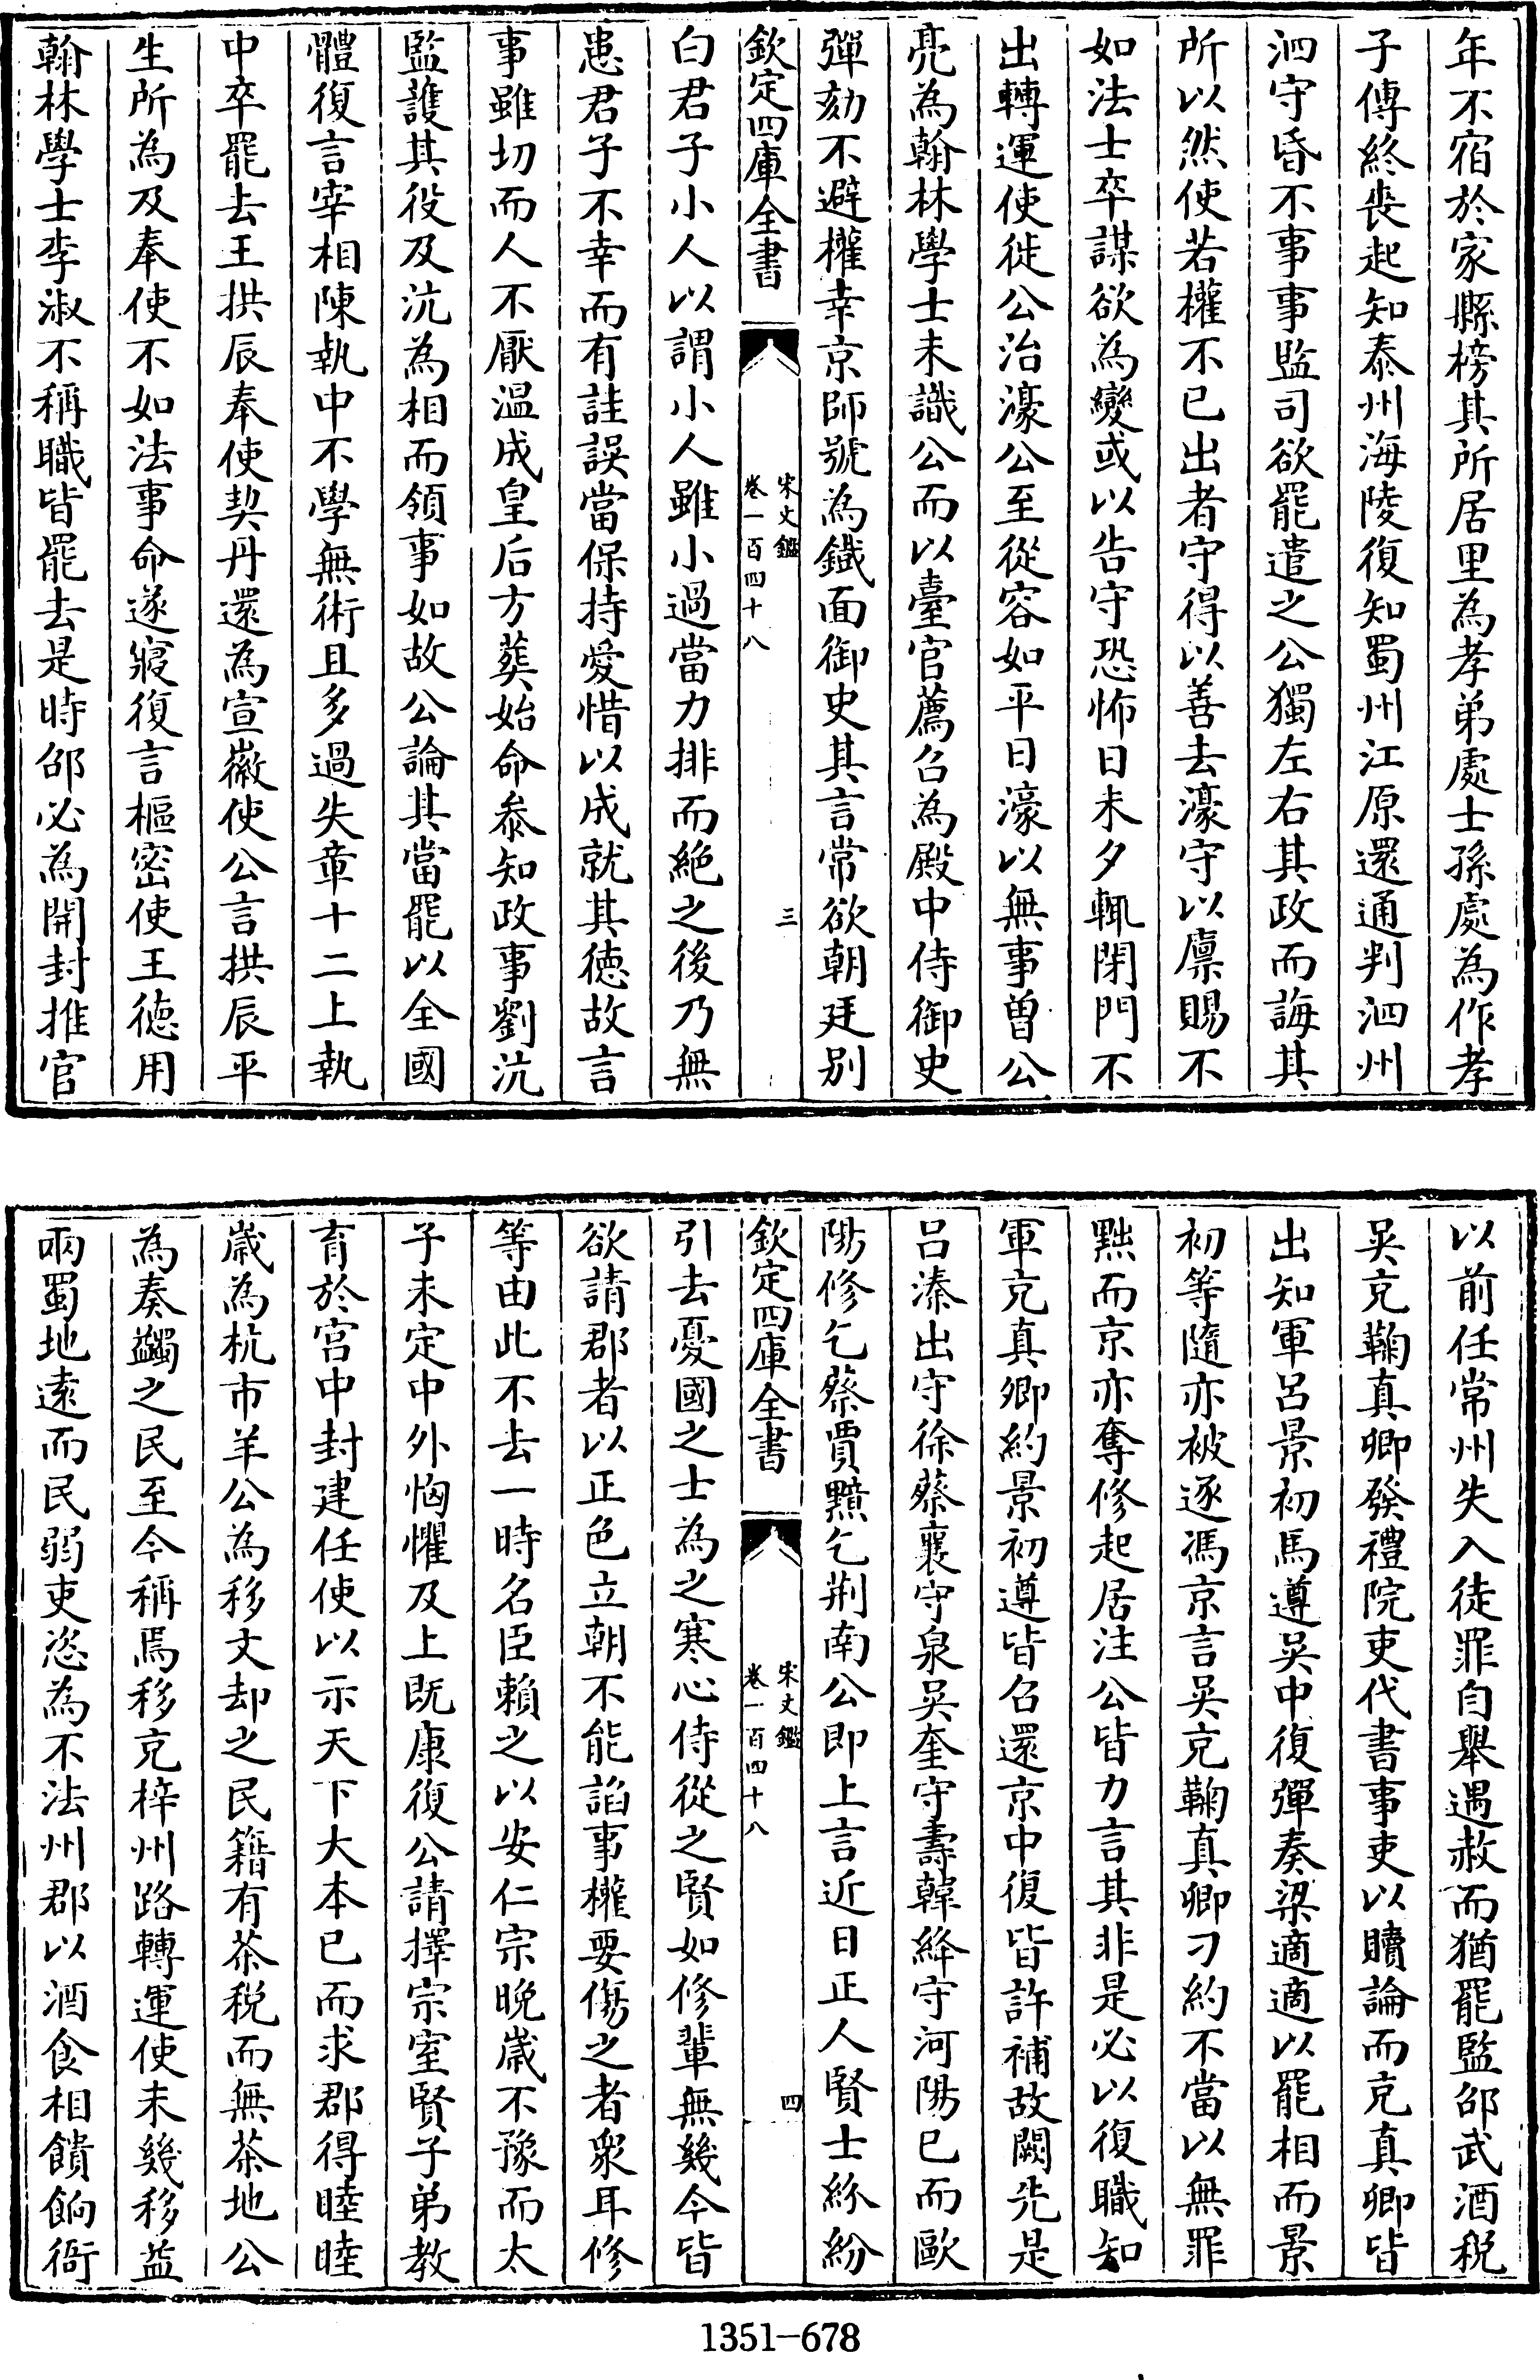 年不宿於家縣榜其所居里為孝弟處士孫處為作孝
子傳終喪起知泰州海陵復知蜀州江原還通判泗州
泗守昏不事事監司欲罷遣之公獨左右其政而誨其
所以然使若權不已出者守得以善去濠守以廪賜不
如法士卒謀欲為變或以告守恐怖日未夕輒閉門不
出轉運使徙公治濠公至從容如平日濠以無事曽公
亮為翰林學士未識公而以臺官薦召為殿中侍御史
彈劾不避權幸京師號為鐵面御史其言常欲朝廷别
欽定四庫全書
宋文鑑
卷一百四十八
三
白君子小人以謂小人雖小過當力排而絶之後乃無
患君子不幸而有詿誤當保持愛惜以成就其德故言
事雖切而人不厭温成皇后方葬始命叅知政事劉沆
監護其役及沆為相而領事如故公論其當罷以全國
體復言宰相陳執中不學無術且多過失章十二上執
中卒罷去王拱辰奉使契丹還為宣徽使公言拱辰平
生所為及奉使不如法事命遂寢復言樞密使王德用
翰林學士李淑不稱職皆罷去是時邵必為開封推官
以前任常州失入徒罪自舉遇赦而猶罷監邵武酒税
吴充鞠真卿發禮院吏代書事吏以贖論而充真卿皆
出知軍吕景初馬遵吴中復彈奏梁適適以罷相而景
初等隨亦被逐馮京言吴充鞠真卿刁約不當以無罪
黜而京亦奪修起居注公皆力言其非是必以復職知
軍充真卿約景初遵皆召還京中復皆許補故闕先是
吕溱出守徐蔡襄守泉吴奎守壽韓絳守河陽已而歐
陽修乞蔡賈黯乞荆南公即上言近日正人賢士紛紛
欽定四庫全書
宋文鑑
卷一百四十八
四
引去憂國之士為之寒心侍從之賢如修輩無幾今皆
欲請郡者以正色立朝不能諂事權要傷之者衆耳修
等由此不去一時名臣賴之以安仁宗晚嵗不豫而太
子未定中外恟懼及上既康復公請擇宗室賢子弟教
育於宫中封建任使以示天下大本已而求郡得睦睦
嵗為杭市羊公為移文却之民籍有茶税而無茶地公
為奏蠲之民至今稱焉移充梓州路轉運使未幾移益
兩蜀地逺而民弱吏恣為不法州郡以酒食相饋餉衙
1351—678